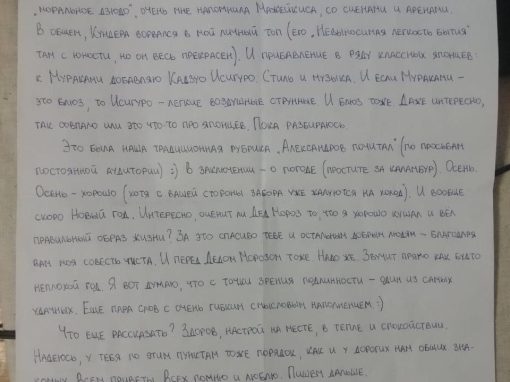 „моральное дзюдо“, очень мне напомнила Мажейкиса, со сценами и аренами.
В общем, Кундера ворвался в мой личный топ (его „Невыносимая легкость бытия“
там с юности, но он весь прекрасен). И прибавление в ряду классных японцев:
к Мураками добавляю Кадзуо Исигуро. Стиль и музыка. И если Мураками –
это блюз, то Исигуро – легкие воздушные струнные. И блюз тоже. Даже интересно,
так совпало или это что-то про японцев. Пока разбираюсь.
Это была наша традиционная рубрика „Александров почитал“ (по просьбам
постоянной аудитории) :) В заключении – о погоде (простите за каламбур). Осень.
Осень – хорошо (хотя с вашей стороны забора уже жалуются на холод). И вообще
скоро Новый год. Интересно, оценит ли Дед Мороз то, что я хорошо кушал и вёл
правильный образ жизни? За это спасибо тебе и остальным добрым людям – благодаря
вам моя совесть чиста. И перед Дедом Морозом тоже. Надо же. Звучит прямо как будто
неплохой год. Я вот думаю, что с точки зрения подлинности – один из самых
удачных. Еще пара слов с очень гибким смысловым наполнением. :)
Что еще рассказать? Здоров, настрой на месте, в тепле и спокойствии.
Надеюсь, у тебя по этим пунктам тоже порядок, как и у дорогих нам общих зна-
комых. Всем приветы. Всех помню и люблю. Пишем дальше.